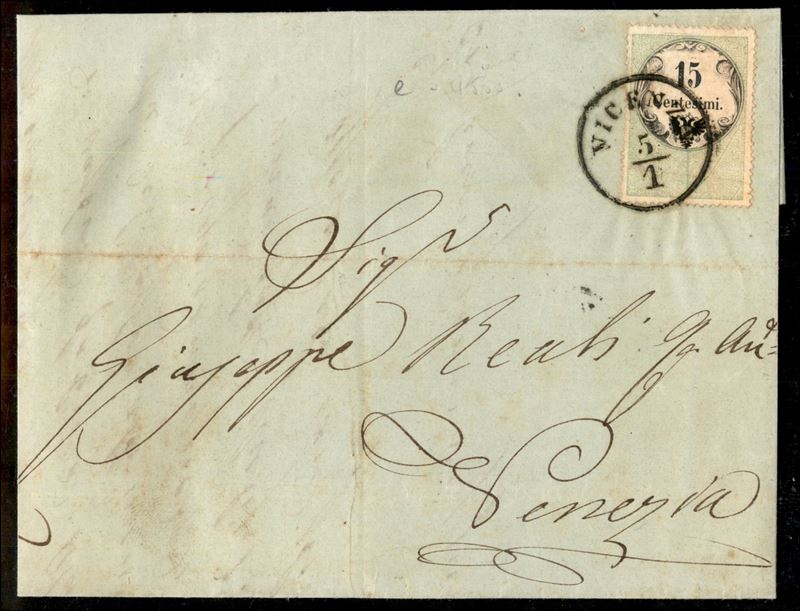 15
Centesimi.
VICEN
5/1
Sigr
Giuseppe Reali
Venezia